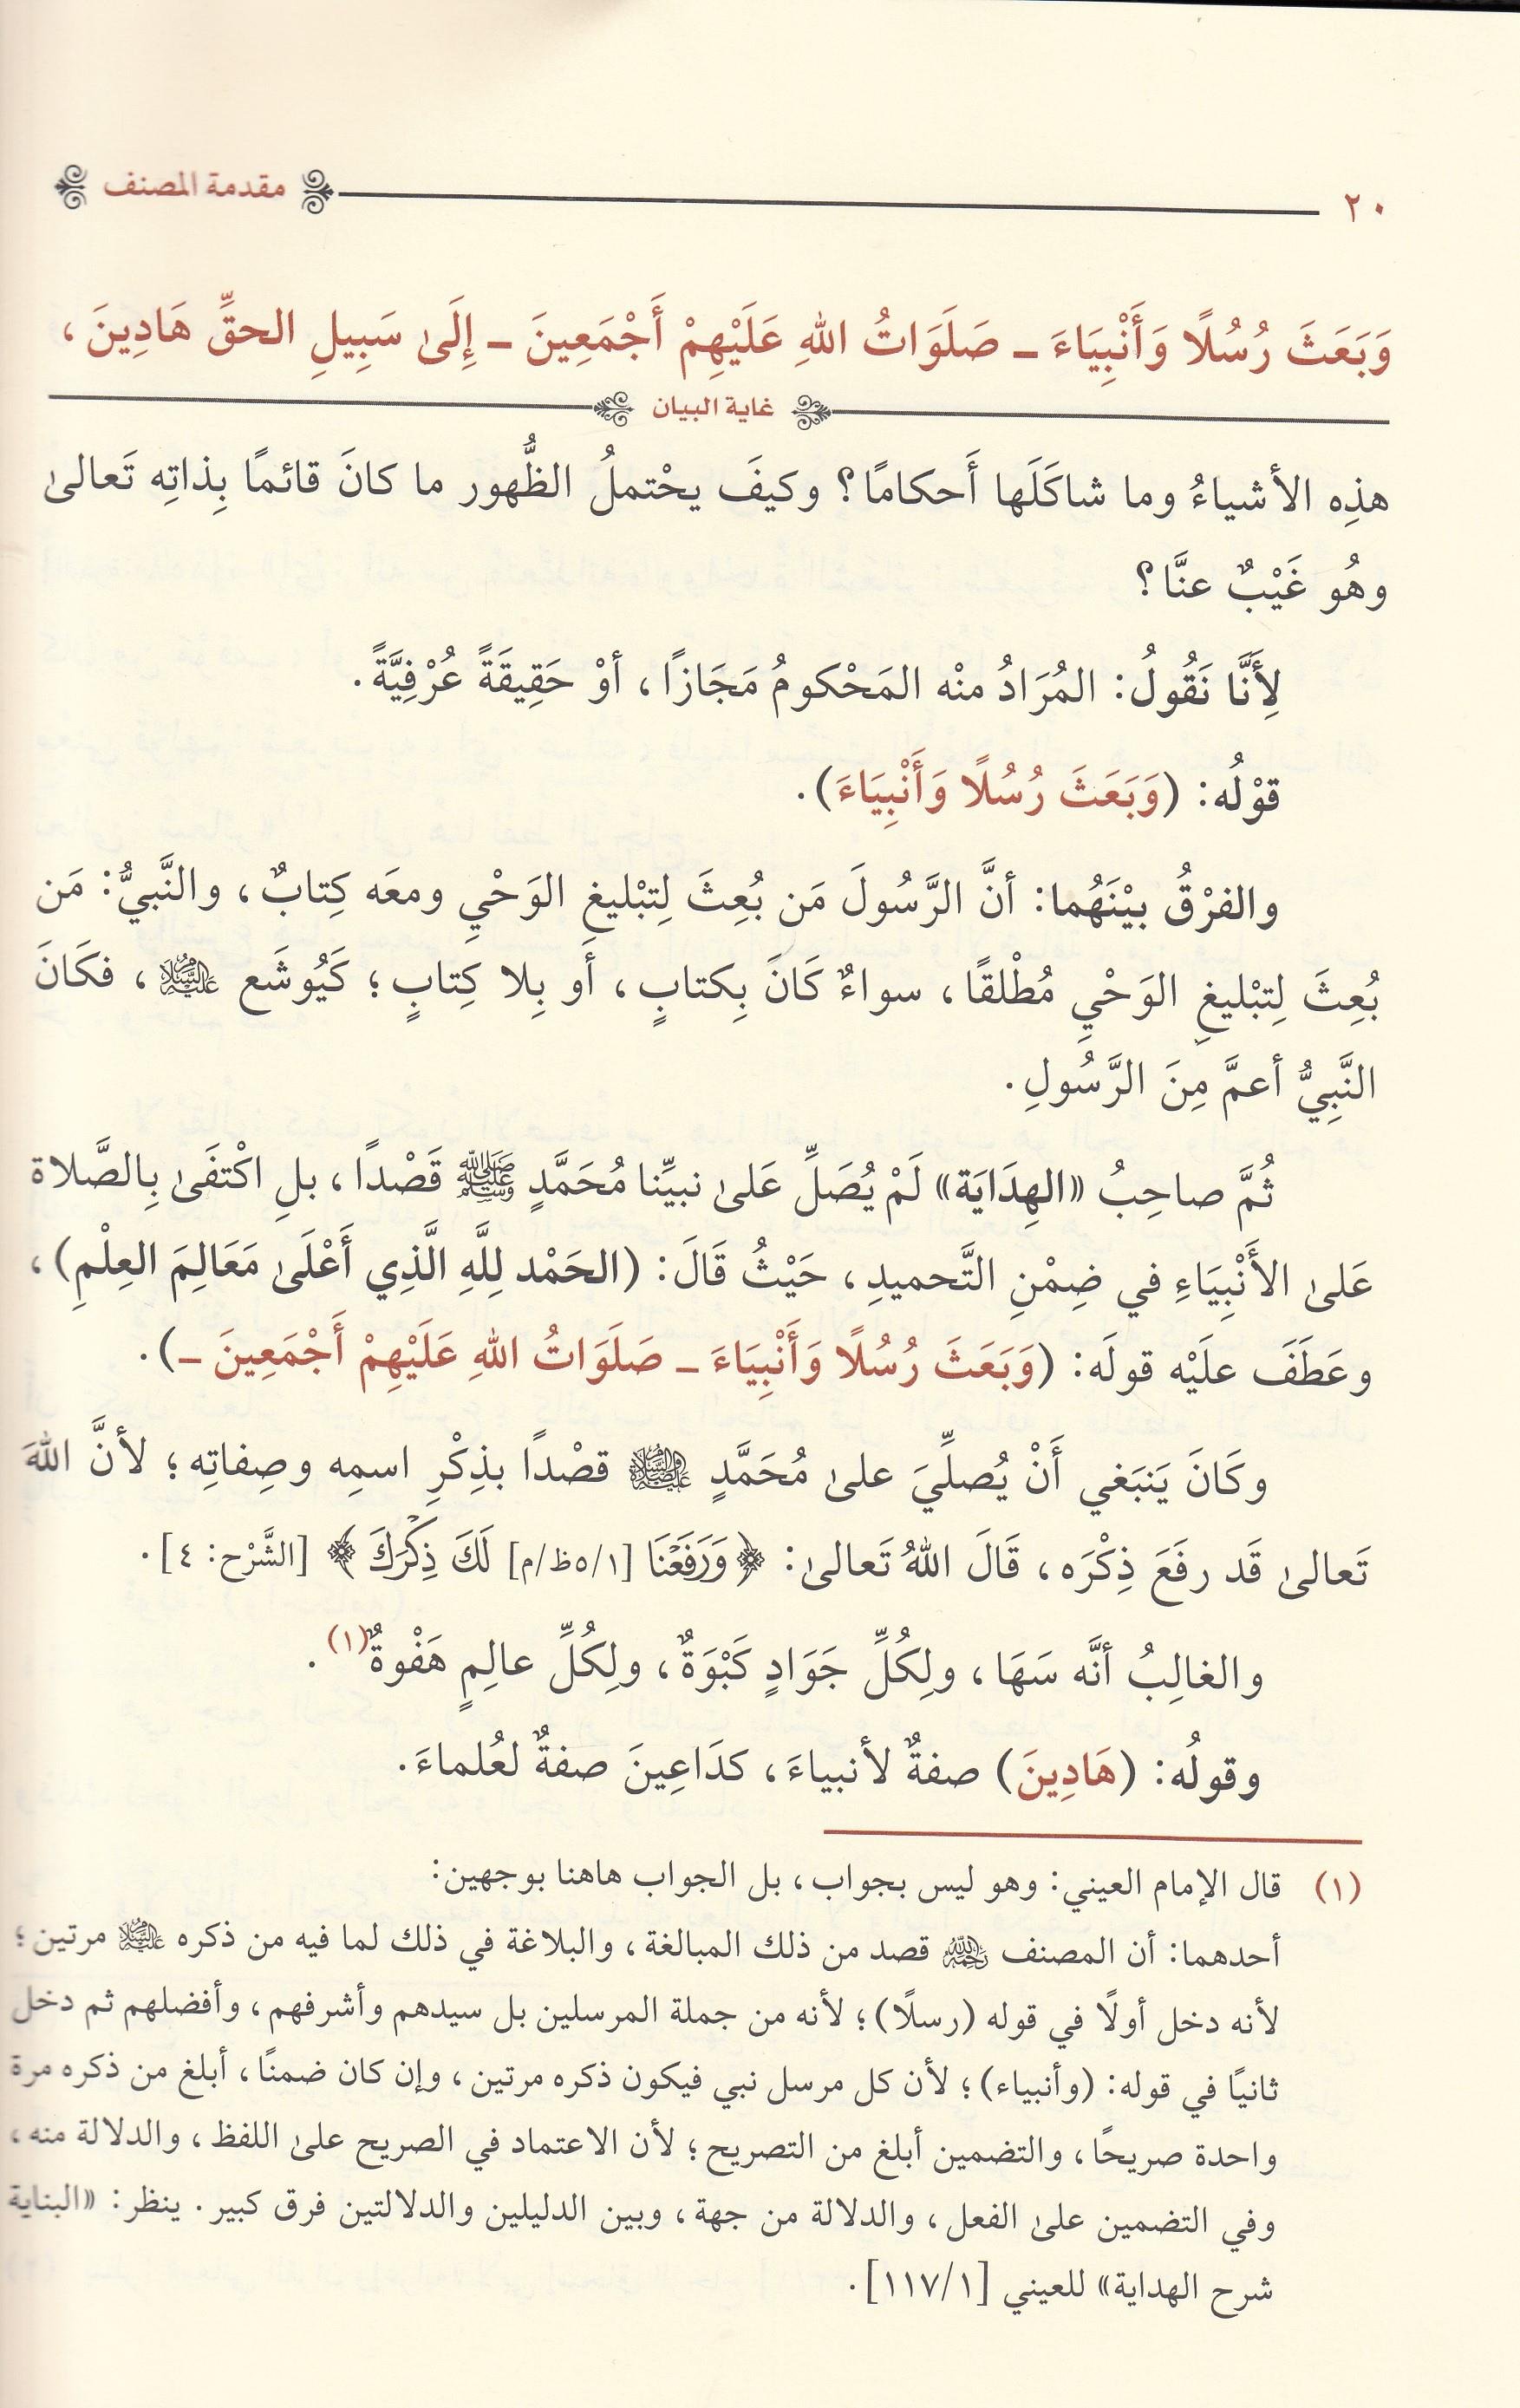 ٢٠ مقدمة المصنف
وَبَعَثَ رُسُلًا وَأَنْبِيَاءَ ـ صَلَوَاتُ اللهِ عَلَيْهِمْ أَجْمَعِينَ ـ إِلَىٰ سَبِيلِ الحقِّ هَادِينَ،
غاية البيان
هذِه الأشياءُ وما شاكَلَها أَحكامًا؟ وكيفَ يحْتملُ الظُّهور ما كانَ قائمًا بِذاتِه تَعالىٰ
وهُو غَيْبٌ عنَّا؟
لِأَنَّا نَقُولُ: المُرَادُ منْه المَحْكومُ مَجَازًا، أوْ حَقِيقَةً عُرْفِيَّةً.
قوْلُه: (وَبَعَثَ رُسُلًا وَأَنْبِيَاءَ).
والفرْقُ بيْنَهُما: أنَّ الرَّسُولَ مَن بُعِثَ لِتبْليغِ الوَحْيِ ومعَه كِتابٌ، والنَّبيُّ: مَن
بُعِثَ لِتبْليغِ الوَحْيِ مُطْلقًا، سواءٌ كَانَ بِكتابٍ، أَو بِلا كِتابٍ؛ كَيُوشَع عليه السلام، فكَانَ
النَّبِيُّ أعمَّ مِنَ الرَّسُولِ.
ثُمَّ صاحِبُ «الهِدَايَة» لَمْ يُصَلِّ عَلىٰ نبيِّنا مُحَمَّدٍ ﷺ قَصْدًا، بلِ اكْتفَىٰ بِالصَّلاة
عَلىٰ الأَنْبِيَاءِ في ضِمْنِ التَّحميدِ، حَيْثُ قَالَ: (الحَمْد لِلَّهِ الَّذِي أَعْلَىٰ مَعَالِمَ العِلْمِ)،
وعَطَفَ علَيْه قولَه: (وَبَعَثَ رُسُلًا وَأَنْبِيَاءَ ـ صَلَوَاتُ اللهِ عَلَيْهِمْ أَجْمَعِينَ ـ).
وكَانَ يَنبَغي أَنْ يُصلِّيَ علىٰ مُحَمَّدٍ عليه الصلاة والسلام قصْدًا بذِكْرِ اسمِه وصِفاتِه؛ لأنَّ اللهَ
تَعالىٰ قَد رفَعَ ذِكْرَه، قَالَ اللهُ تَعالىٰ: ﴿وَرَفَعْنَا [٥/١ظ/م] لَكَ ذِكْرَكَ﴾ [الشَّرْح: ٤].
والغالِبُ أنَّه سَهَا، ولِكُلِّ جَوَادٍ كَبْوَةٌ، ولِكُلِّ عالِمٍ هَفْوةٌ(١).
وقولُه: (هَادِينَ) صفةٌ لأنبياءَ، كدَاعِينَ صفةٌ لعُلماءَ.
(١) قال الإمام العيني: وهو ليس بجواب، بل الجواب هاهنا بوجهين:
أحدهما: أن المصنف رحمه الله قصد من ذلك المبالغة، والبلاغة في ذلك لما فيه من ذكره عليه السلام مرتين؛
لأنه دخل أولًا في قوله (رسلًا)؛ لأنه من جملة المرسلين بل سيدهم وأشرفهم، وأفضلهم ثم دخل
ثانيًا في قوله: (وأنبياء)؛ لأن كل مرسل نبي فيكون ذكره مرتين، وإن كان ضمنًا، أبلغ من ذكره مرة
واحدة صريحًا، والتضمين أبلغ من التصريح؛ لأن الاعتماد في الصريح علىٰ اللفظ، والدلالة منه،
وفي التضمين علىٰ الفعل، والدلالة من جهة، وبين الدليلين والدلالتين فرق كبير. ينظر: «البناية
شرح الهداية» للعيني [١١٧/١].